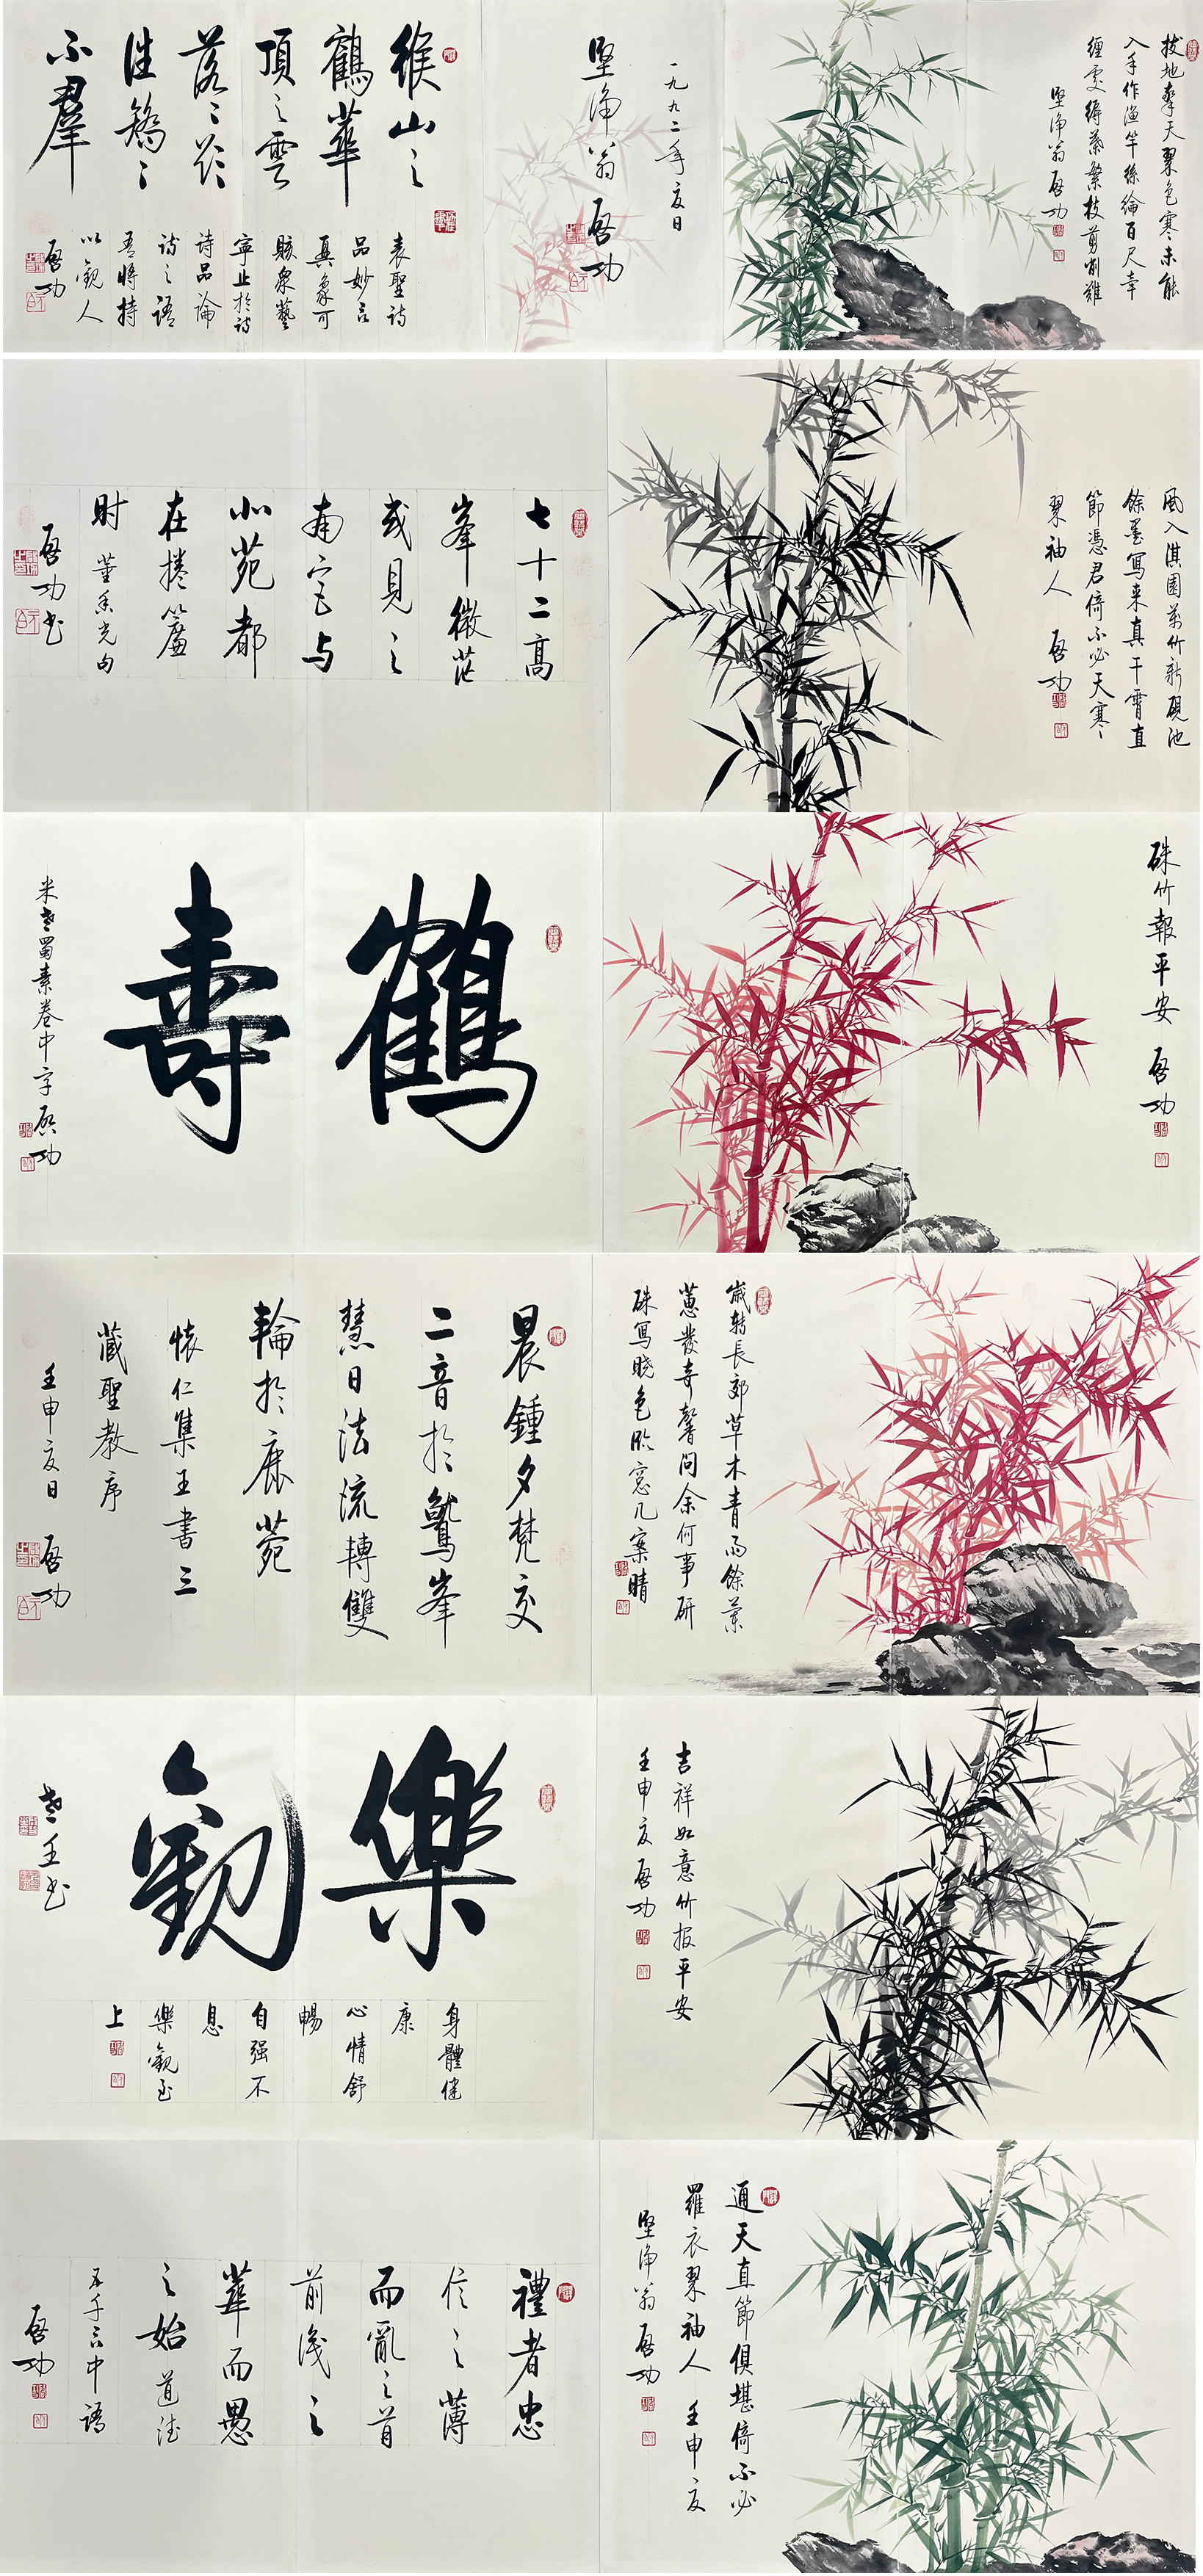 拔地摩天翠色寒未能
入手作漁竿絲綸百尺牽
纏處縟葉繁枝剪削難
堅净翁 啓功
一九九二年夏日
堅净翁 啓功
緱山之
鶴華
頂之雲
落落欲
往矯矯
不羣
表聖詩
品妙言
真象可
賅衆藝
寧止於詩
詩品論
詩之語
吾將持
以觀人
啓功
風入淇園萬竹新硯池
餘墨寫來真干霄直
節憑君倚不必天寒
翠袖人 啓功
七十二高
峯微茫
或見之
南宫與
小苑都
在捲簾
時 董香光句
啓功書
硃竹報平安 啓功
鶴
壽
米老蜀素卷中字 啓功
歲转長郊草木青雨餘蘭
蕙發奇馨問余何事研
硃寫曉色臨窓几案晴
晨鍾夕梵交
二音於鷲峯
慧日法流轉雙
輪於鹿菀
懷仁集王書三
藏聖教序
壬申夏日 啓功
吉祥如意竹报平安
壬申夏 啓功
樂
觀
老壬书
身體健
康
心情舒
暢
自强不
息
樂觀至
上
通天直節俱堪倚不必
羅衣翠袖人 壬申夏
堅净翁 啓功
禮者忠
信之薄
而亂之首
前識之
華而愚
之始 道德
五千言中語
啓功